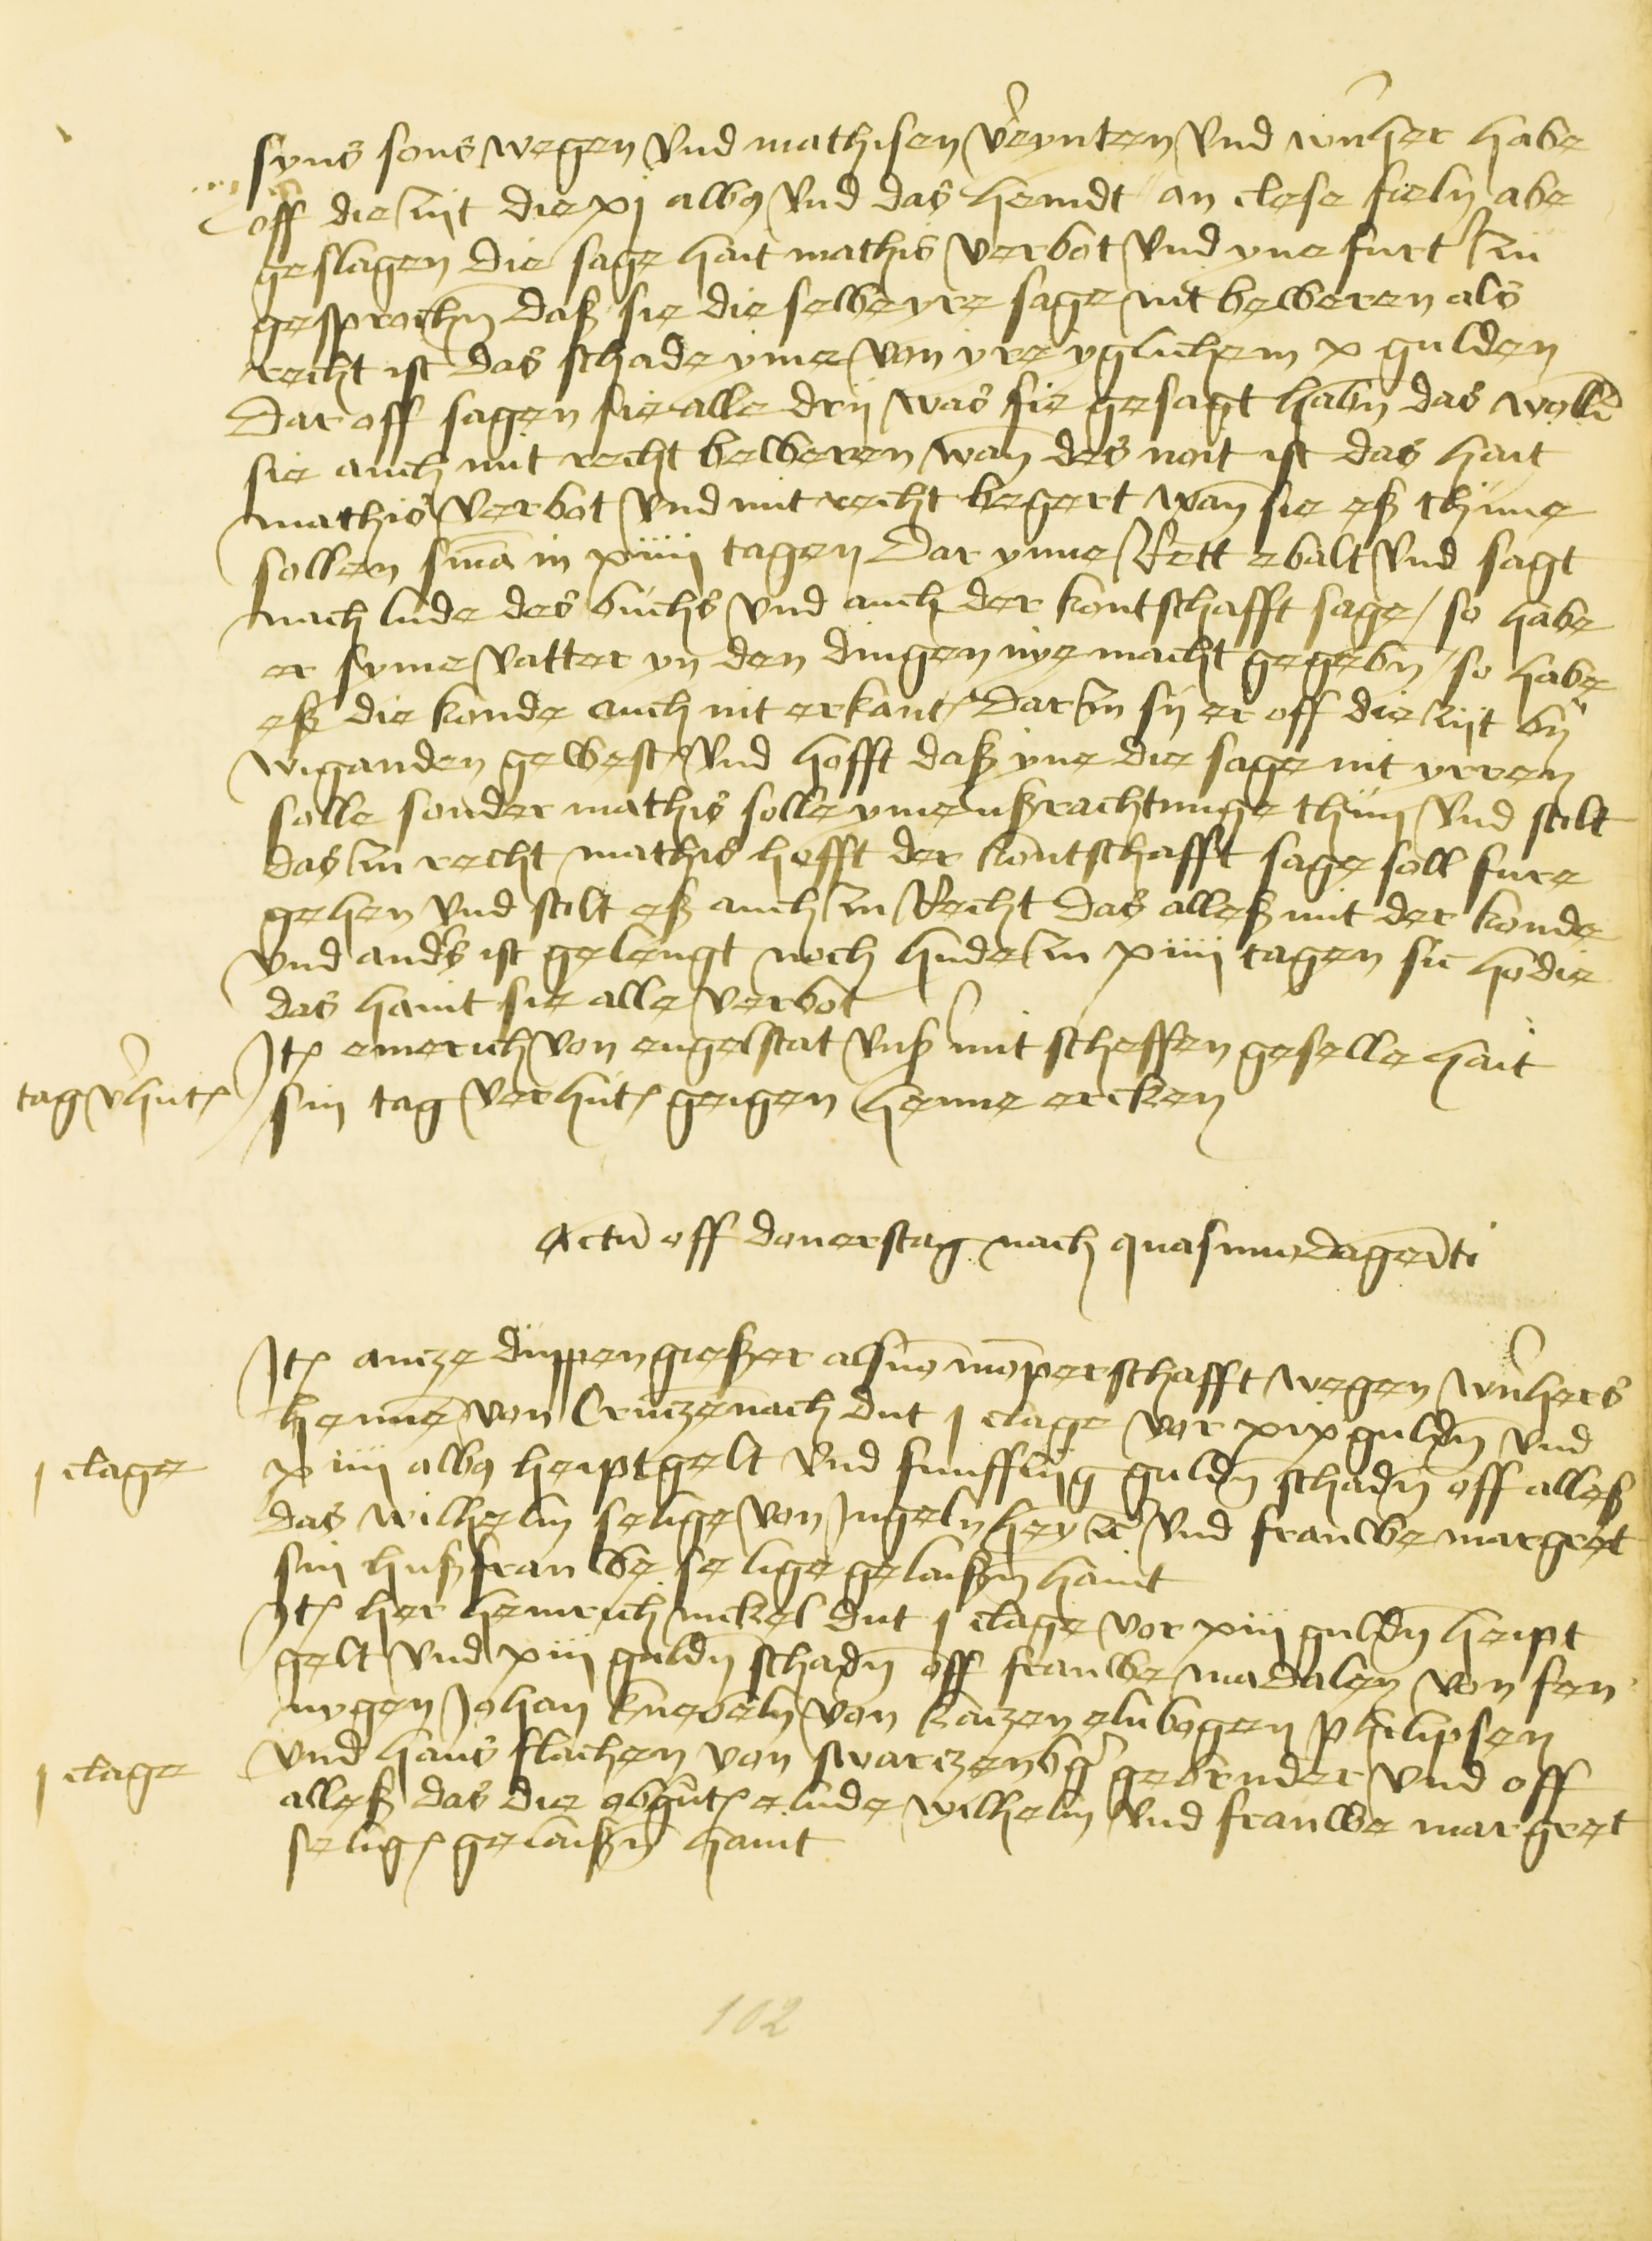 syns sons wegen vnd mathisen v'eynten vnd wn'her habe
off die zijt die xj albg vnd das hemdt an clese fieln abe
geslagen die sage hait mathis verbot vnd yne furt zu
gesprochn daß sie die selbe yre sage nit beweren als
recht ist das schade yme von yre yglichem x gulden
Dar off sagen sie alle drij was sie gesagt habn das wolln
sie auch mit recht beweren wan des noit ist das hait
mathis verbot vnd mit recht begert wan sie eß thune
sollen sma in xiiij tagen Dar ynne Rett ebalt vnd sagt
nach lude des buchs vnd auch der kontschafft sage / so habe
er syme vatter yn den dingen nye macht gegebn / so habe
eß die konde auch nit erkant / Dar zu sy er off die zijt by
wiganden gewest vnd hofft daß yne die sage nit yrren
solle sonder mathis solle yme ußrachtunge thun vnd stelt
das zu recht mathis hofft der kontschafft sage soll fure
gehen vnd stelt eß auch zu Recht das alleß mit der konde
vnd and's ist gelengt noch hude zu xiiij tagen sic hodie
das haint sie alle verbot
It̄ emerich von engelstat vnß mit scheffen geselle hait
tag v'hut̄ sin tag verhut̄ geigen henne ercken
Actū off donerstag nach quasimodageniti
It̄ antze duppengießer als vō momperschafft wegen wn'hers
henne von Crutzenach dut j clage vor xix guldn vnd
j clage xiiij albg heiptgelt vnd funfftzig guldn schadn off alleß
das wilhelm selige von Ingelnheym vnd frauwe margret
sin hußfrauwe selige gelaißn haint
It̄ her heinrich nickel dut j clage vor xiij guldn heipt
gelt vnd xiij guldn schadn off frauwe madalen von fen
nygen Johan knebeln von katzenelnbogen philipsen
j clage vnd hans flachen von swarczenb'g gebruder vnd off
alleß das die obgnt̄ elude wilhelm vnd frauwe margret
seliḡ gelaißn haint
102